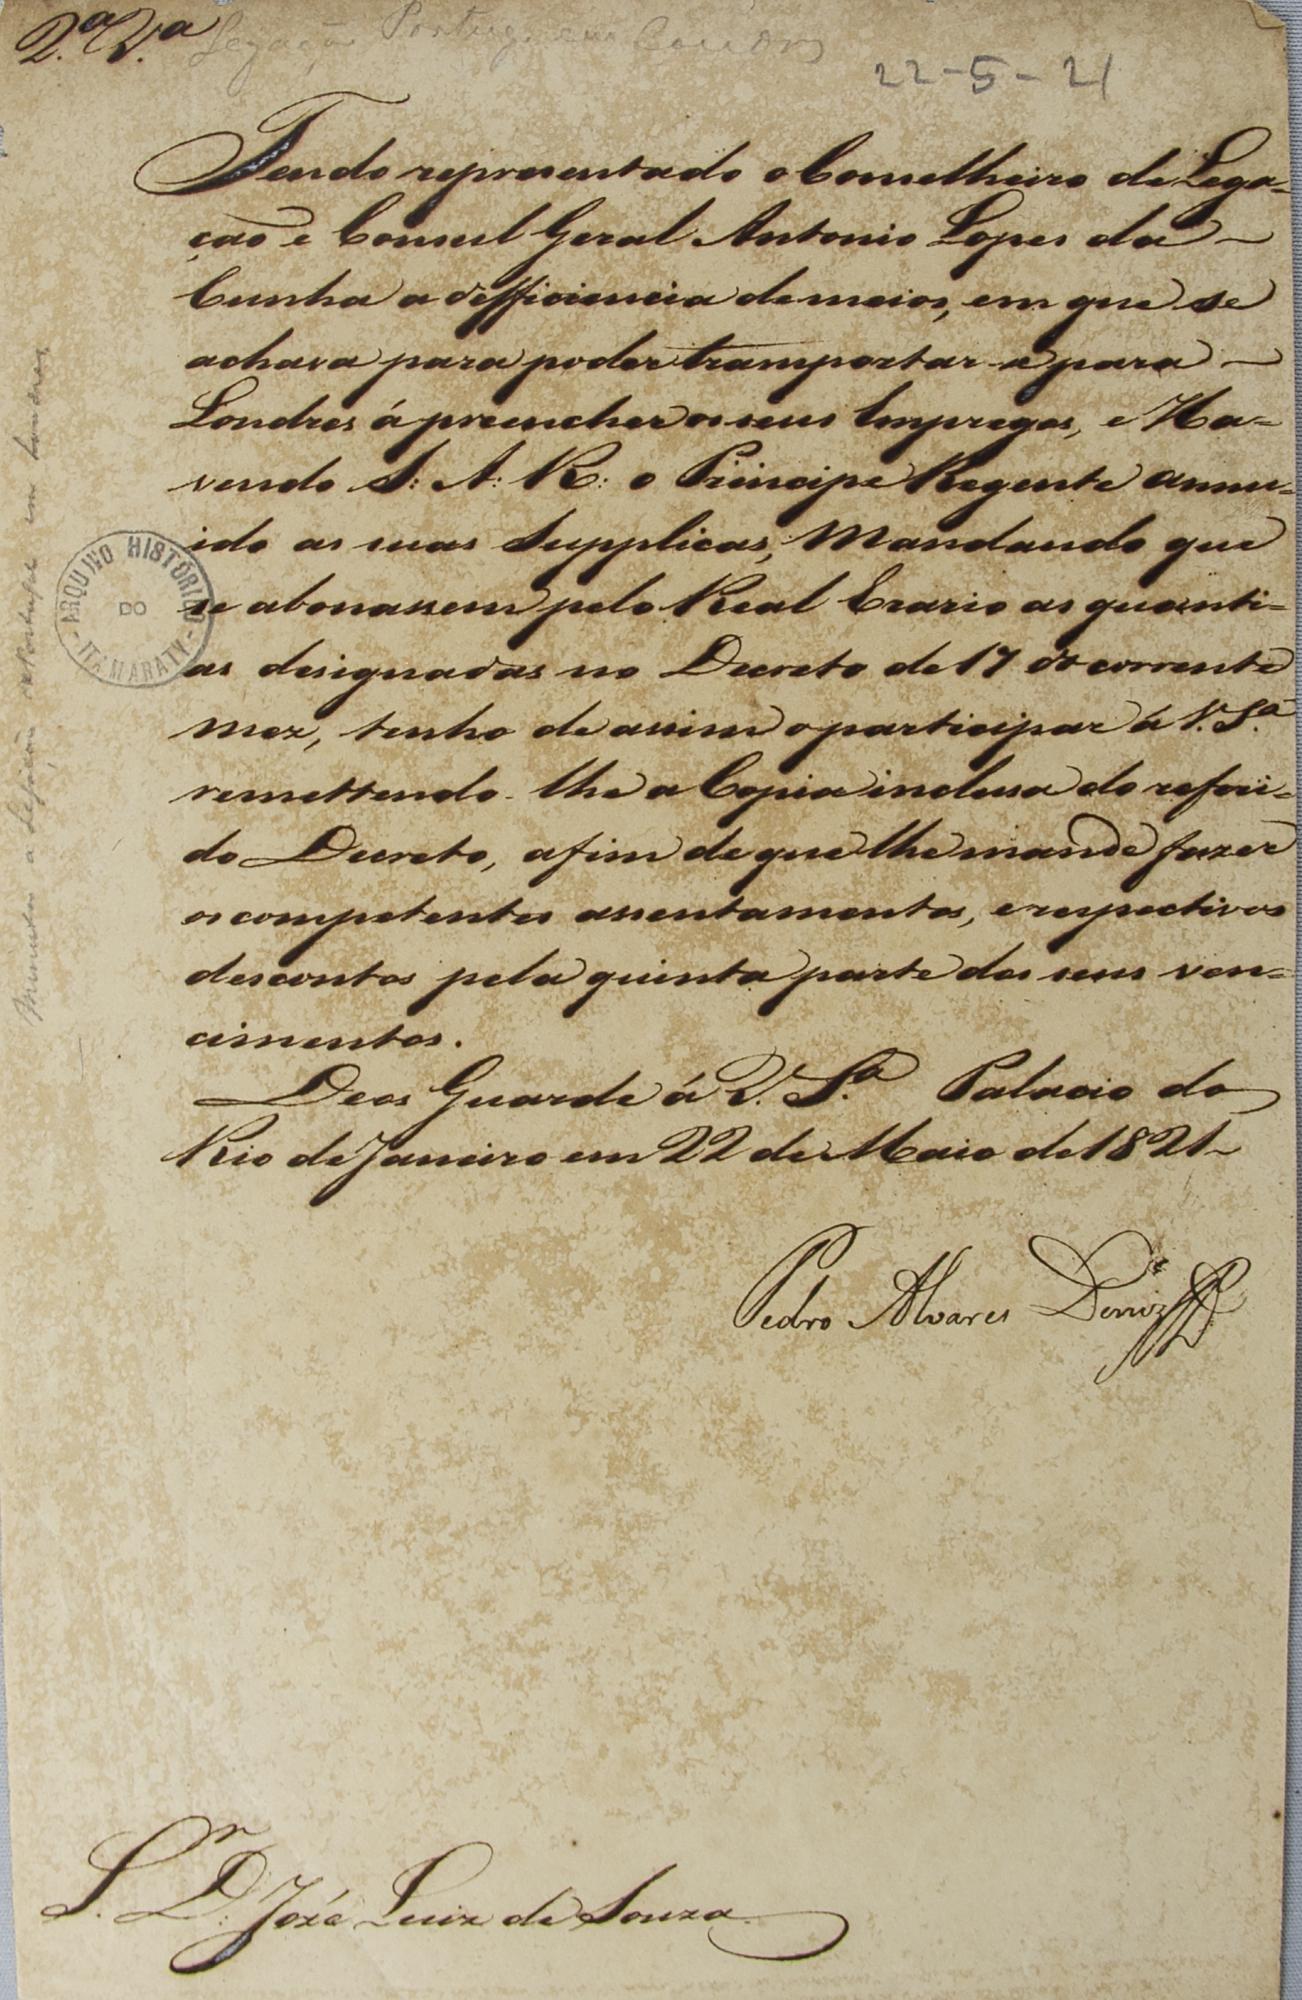 2.ª V.ª
Legação Portug. em Londres
22-5-21
Tendo representado o Conselheiro de Lega-
ção e Consul Geral Antonio Lopes da
Cunha a defficiencia de meios, em que se
achava para poder transportar-se para
Londres á preencher os seus Empregos, e Ha-
vendo S: A: R: o Principe Regente annu-
ido as suas Supplicas, Mandando que
se abonassem pelo Real Erario as quanti-
as designadas no Decreto de 17 do corrente
mez, tenho de assim o participar á V. S.ª
remettendo-lhe a Copia inclusa do referi-
do Decreto, afim de que lhe mande fazer
os competentes assentamentos, e respectivos
descontos pela quinta parte dos seus ven-
cimentos.
Deos Guarde á V. S.ª Palacio do
Rio de Janeiro em 22 de Maio de 1821
Pedro Alvares Deniz
S.r D. Jozé Luiz de Souza
ARQUIVO HISTÓRICO
DO
ITAMARATY